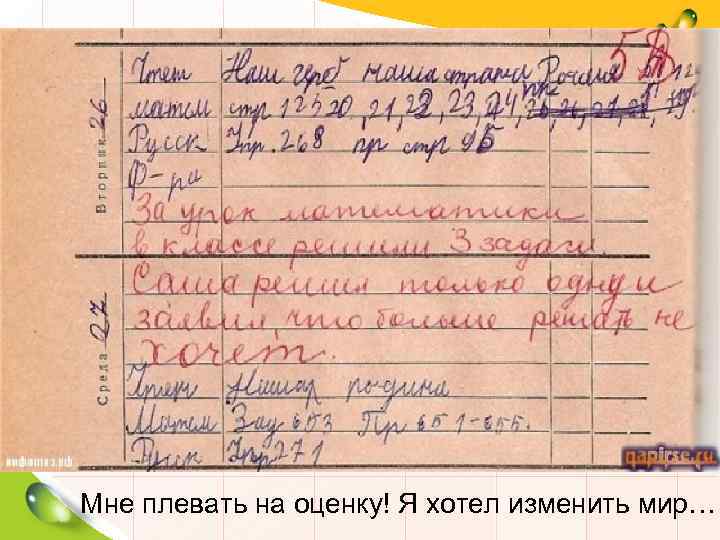 Чтен Наш герб наша страна Россия 5
матем стр 125 20, 21, 22, 23, 24,
Вторник 26
Русск Упр. 268 пр стр 95
Ф-ра
За урок математики
в классе решили 3 задачи.
Саша решил только одну и
заявил, что больше решать не
хочет.
Среда 27
Чтен Нашая родина
Матем Зад 653 Пр 651-655.
Русск Упр 271
инфотоз.рф
gapicse.ru
Мне плевать на оценку! Я хотел изменить мир…